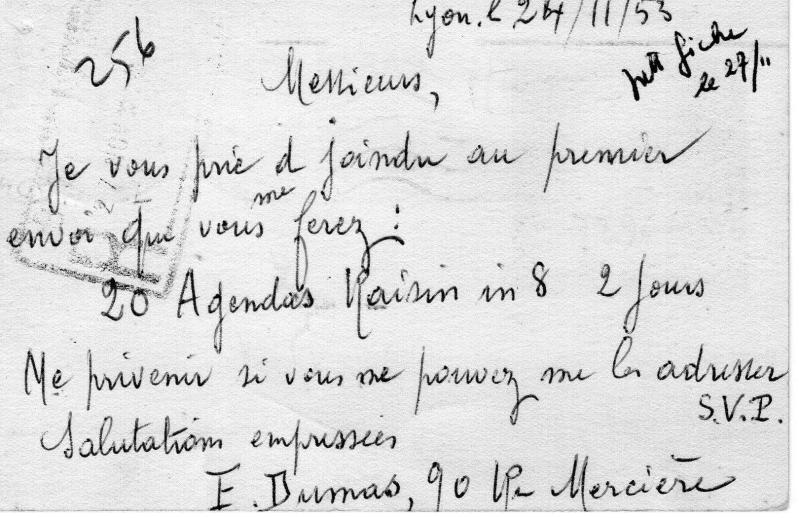 Lyon. le 24/11/53
256
fiche
le 27/11
Messieurs,
Je vous prie d joindre au premier
envoi que vous me ferez :
20 Agendas Raisin in 8 2 Jours
Me prévenir si vous ne pouvez me les adresser
S.V.P.
Salutations empressées
E. Dumas, 90 Rue Mercière